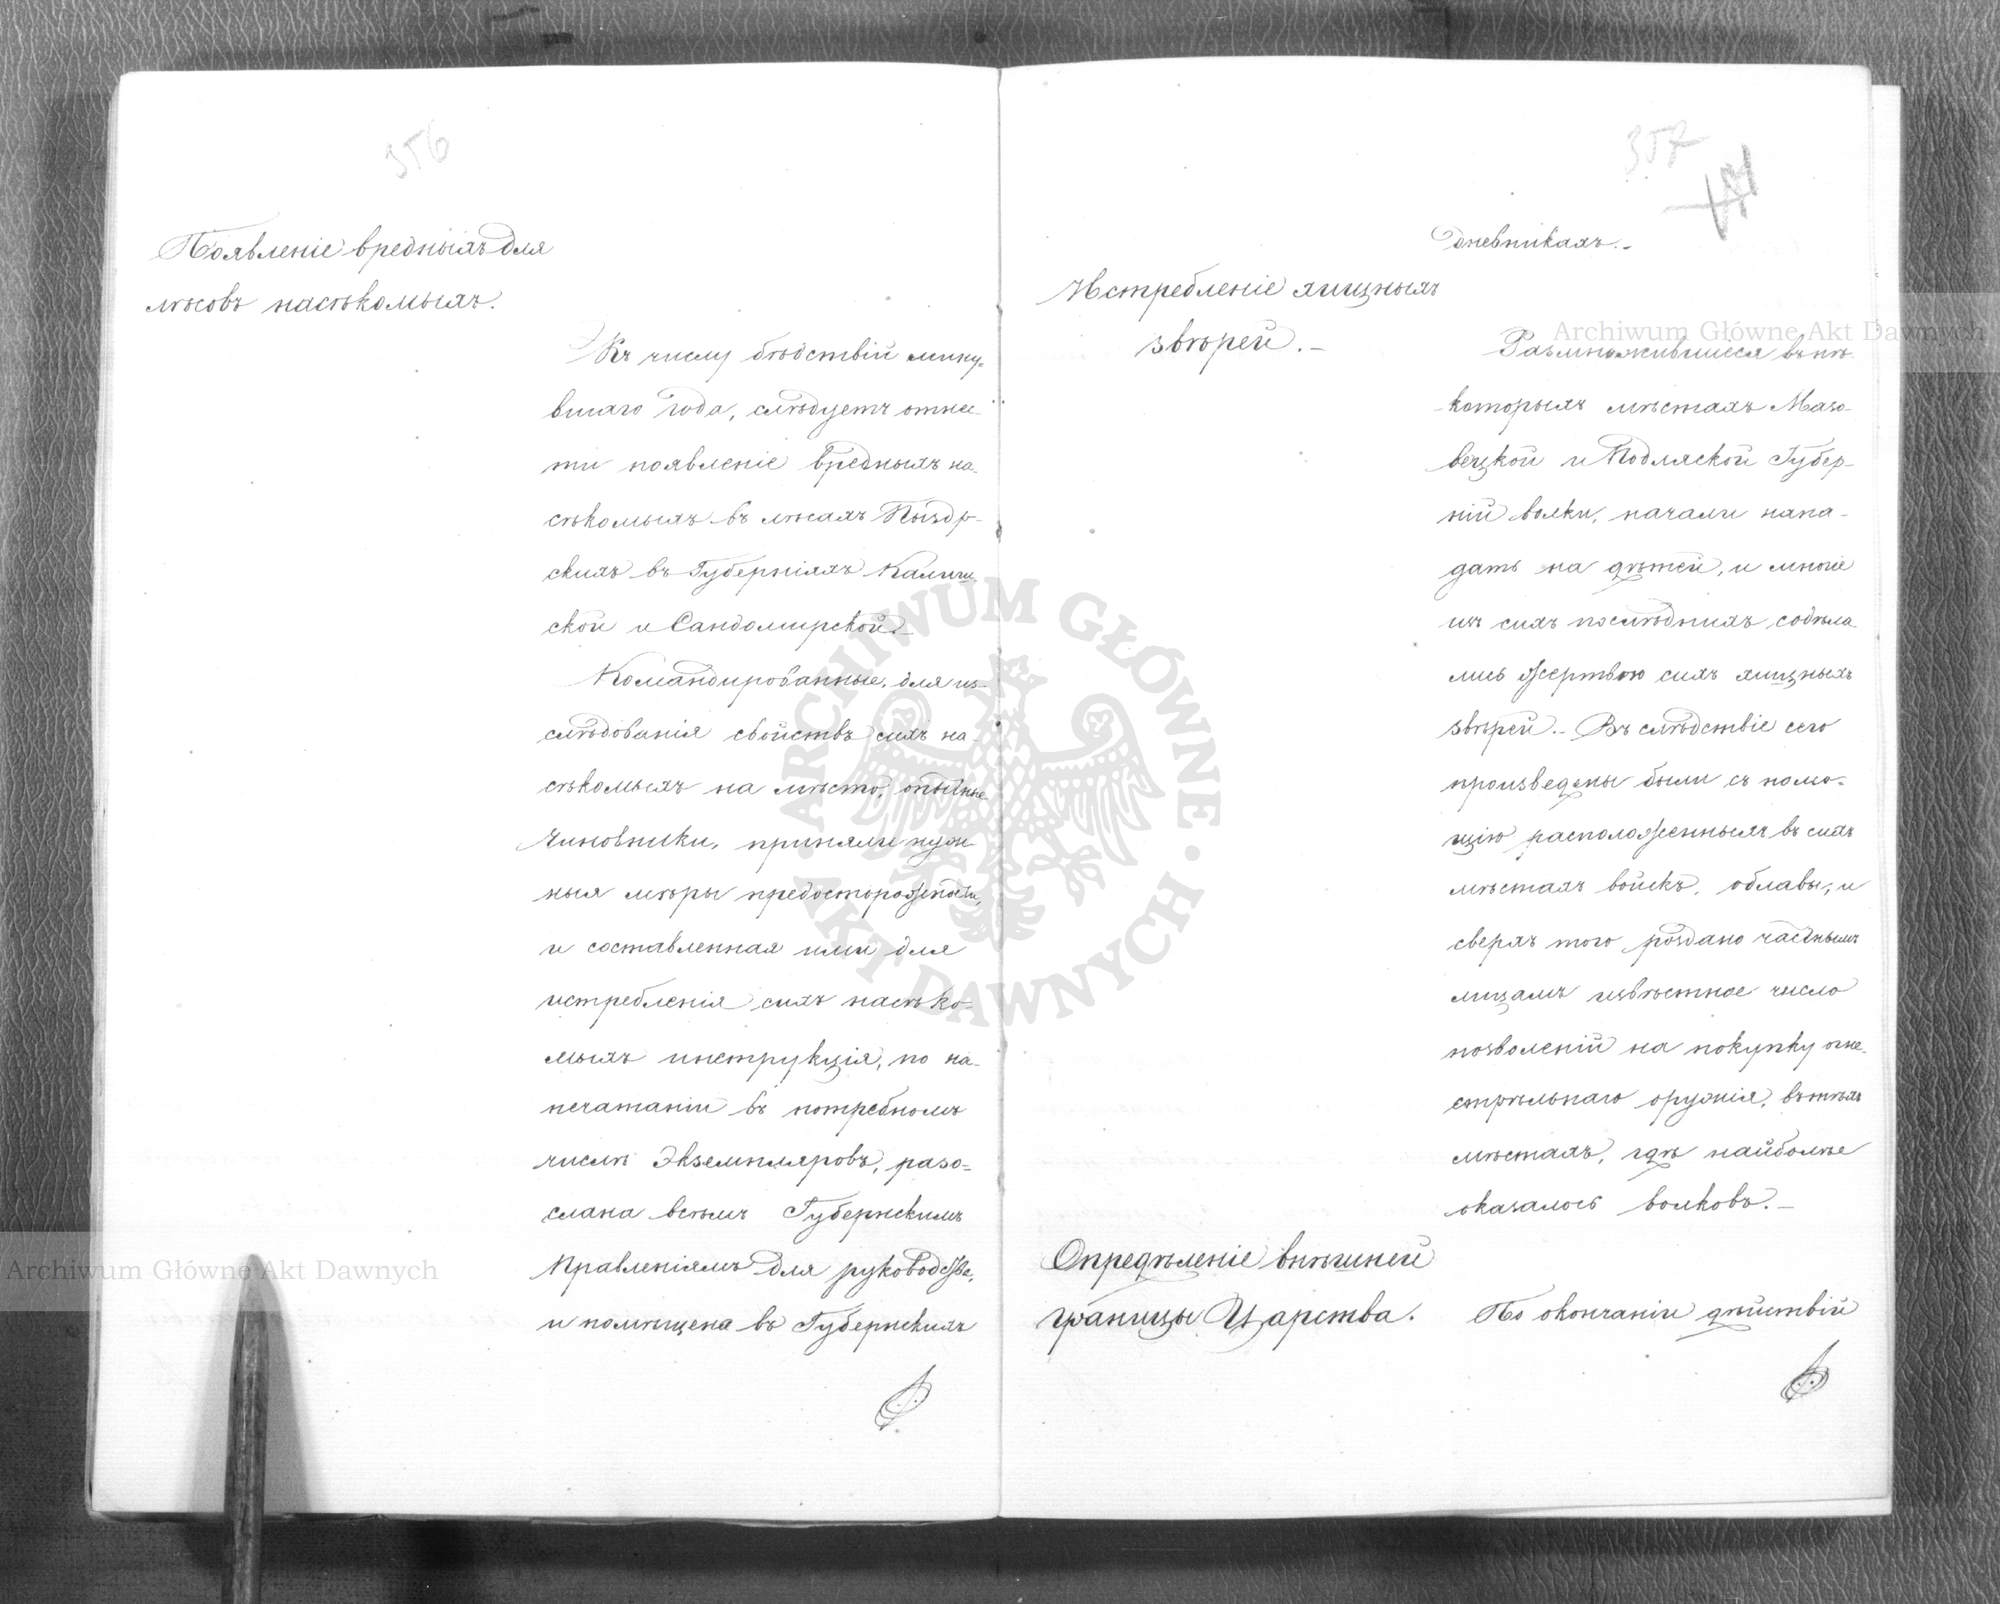 356
Появленіе вредныхъ для
лѣсовъ насѣкомыхъ.
Къ числу бѣдствій мину=
вшаго года, слѣдуетъ отнес-
ти появленіе вредныхъ на-
сѣкомыхъ въ лѣсахъ Пыздр-
скихъ въ Губерніяхъ Калиш-
ской и Сандомирской.-
Командированные, для из-
слѣдованія свойствъ сихъ на-
сѣкомыхъ на мѣсто, опытные
Чиновники, приняли нуж-
ныя мѣры предосторожности,
и составленная ими для
истребленія сихъ насѣко-
мыхъ инструкція, по на-
печатаніи въ потребномъ
числѣ Экземпляровъ, разо=
слана всѣмъ Губернскимъ
Правленіямъ для руководства,
и помѣщена въ Губернскихъ
357
дневникахъ.-
Истребленіе хищныхъ
звѣрей.-
Размножившіеся въ нѣ-
которыхъ мѣстахъ Мазо-
вецкой и Подляской Губер-
ній волки, начали напа-
дать на дѣтей, и многіе
изъ сихъ послѣднихъ содѣла-
лись жертвою сихъ хищныхъ
звѣрей.- Въ слѣдствіе сего
произведены были съ помо-
щію расположенныхъ въ сихъ
мѣстахъ войскъ, облавы, и
сверхъ того роздано частнымъ
лицамъ извѣстное число
позволеній на покупку огне-
стрѣльнаго оружія, въ тѣхъ
мѣстахъ, гдѣ наиболѣе
оказалось волковъ.-
Опредѣленіе внѣшней
границы Царства.
По окончаніи дѣйствій
Archiwum Główne Akt Dawnych
Archiwum Główne Akt Dawnych
ARCHIWUM GŁÓWNE · AKT DAWNYCH ·